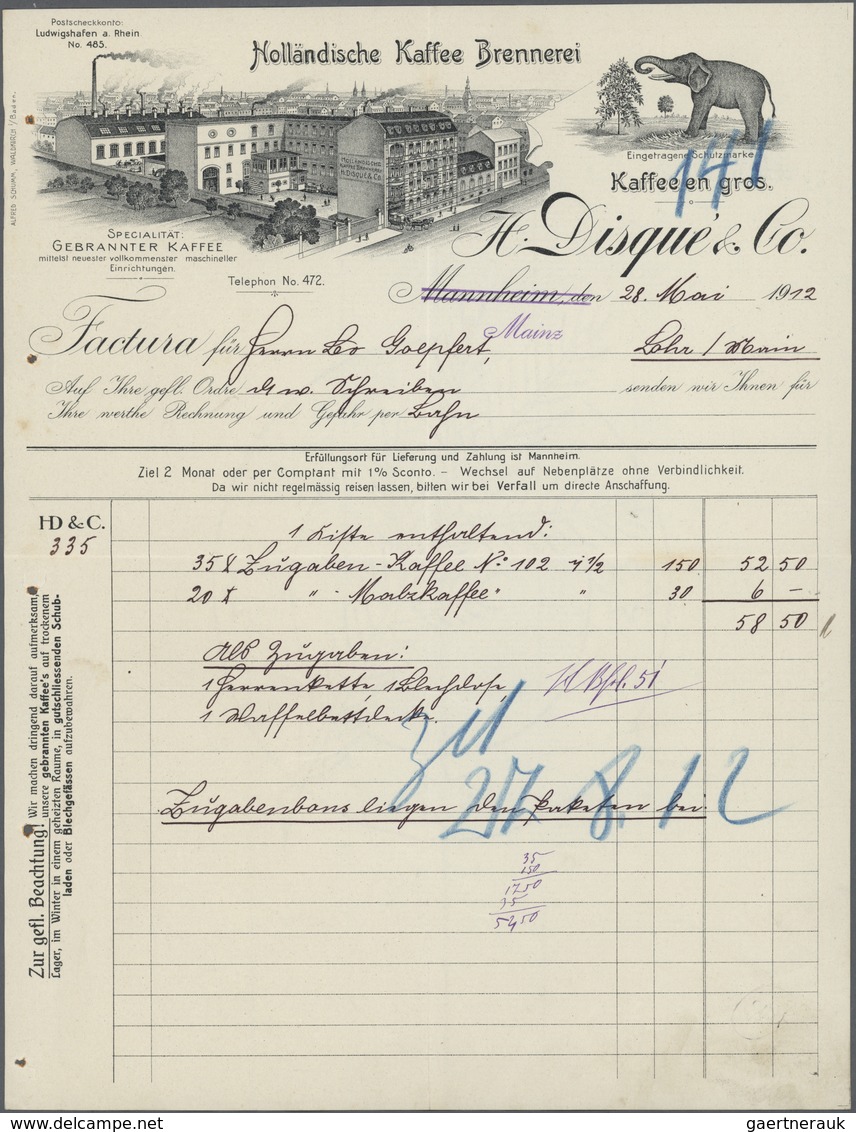 Postscheckkonto:
Ludwigshafen a. Rhein
No. 485.
Holländische Kaffee Brennerei
ALFRED SCHUMM, WALDKIRCH i/Baden.
HOLLÄNDISCHE
KAFFEE BRENNEREI
H. DISQUÉ & Co.
Eingetragene Schutzmarke
141
Kaffee en gros.
SPECIALITÄT:
GEBRANNTER KAFFEE
mittelst neuester vollkommenster maschineller
Einrichtungen.
H. Disqué & Co.
Telephon No. 472.
Mannheim, den 28. Mai 1912
Mainz
Factura für Herrn Leo Goepfert, Lohr / Main
Auf Ihre gefl. Ordre d. w. Schreiben senden wir Ihnen für
Ihre werthe Rechnung und Gefahr per Bahn
Erfüllungsort für Lieferung und Zahlung ist Mannheim.
Ziel 2 Monat oder per Comptant mit 1% Sconto. – Wechsel auf Nebenplätze ohne Verbindlichkeit.
Da wir nicht regelmässig reisen lassen, bitten wir bei Verfall um directe Anschaffung.
HD & C.
335
1 Kiste enthaltend:
35 ℔ Zugaben-Kaffee No. 102 in 1/2 150 52 50
20 ℔ " - Malzkaffee " " 30 6 –
58 50
Als Zugaben:
1 Herrenkette, 1 Blechdose,
1 Waffelbettdecke.
51
27. 8. 12
Zugabenbons liegen den Paketen bei.
35
150
1750
35
5250
Zur gefl. Beachtung! Wir machen dringend darauf aufmerksam,
unsere gebrannten Kaffee's auf trockenem
Lager, im Winter in einem geheizten Raume, in gutschliessenden Schub-
laden oder Blechgefässen aufzubewahren.
delcampe.net
gaertnerauk